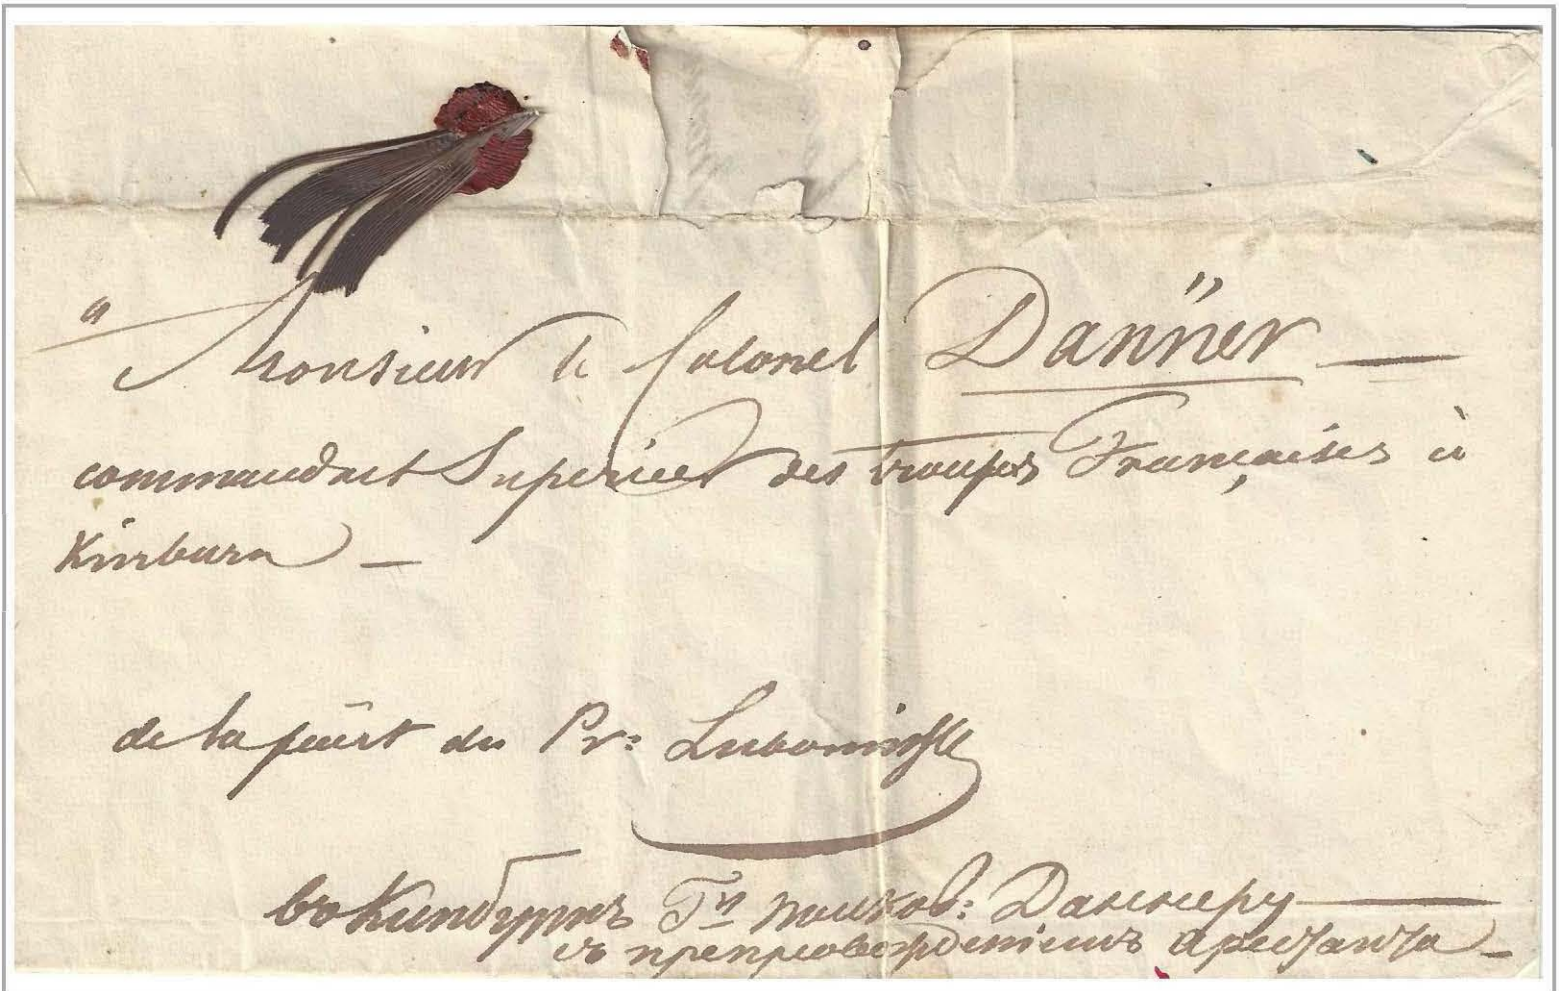 a Monsieur le Colonel Danner —
commandant Superieur des troupes Françaises à
Kinburn —
de la part du Pr: Lubomirsky
въ Кинбурнъ Гну полков: Даннеру —
съ препровожденiемъ арестанта —